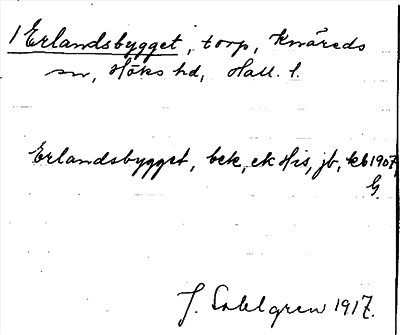 1 Erlandsbygget, torp, Knäreds
sn, Höks hd, Hall. l.
Erlandsbygget, bek, ek His, jb, kb 1907,
G.
J. Sahlgren 1917.